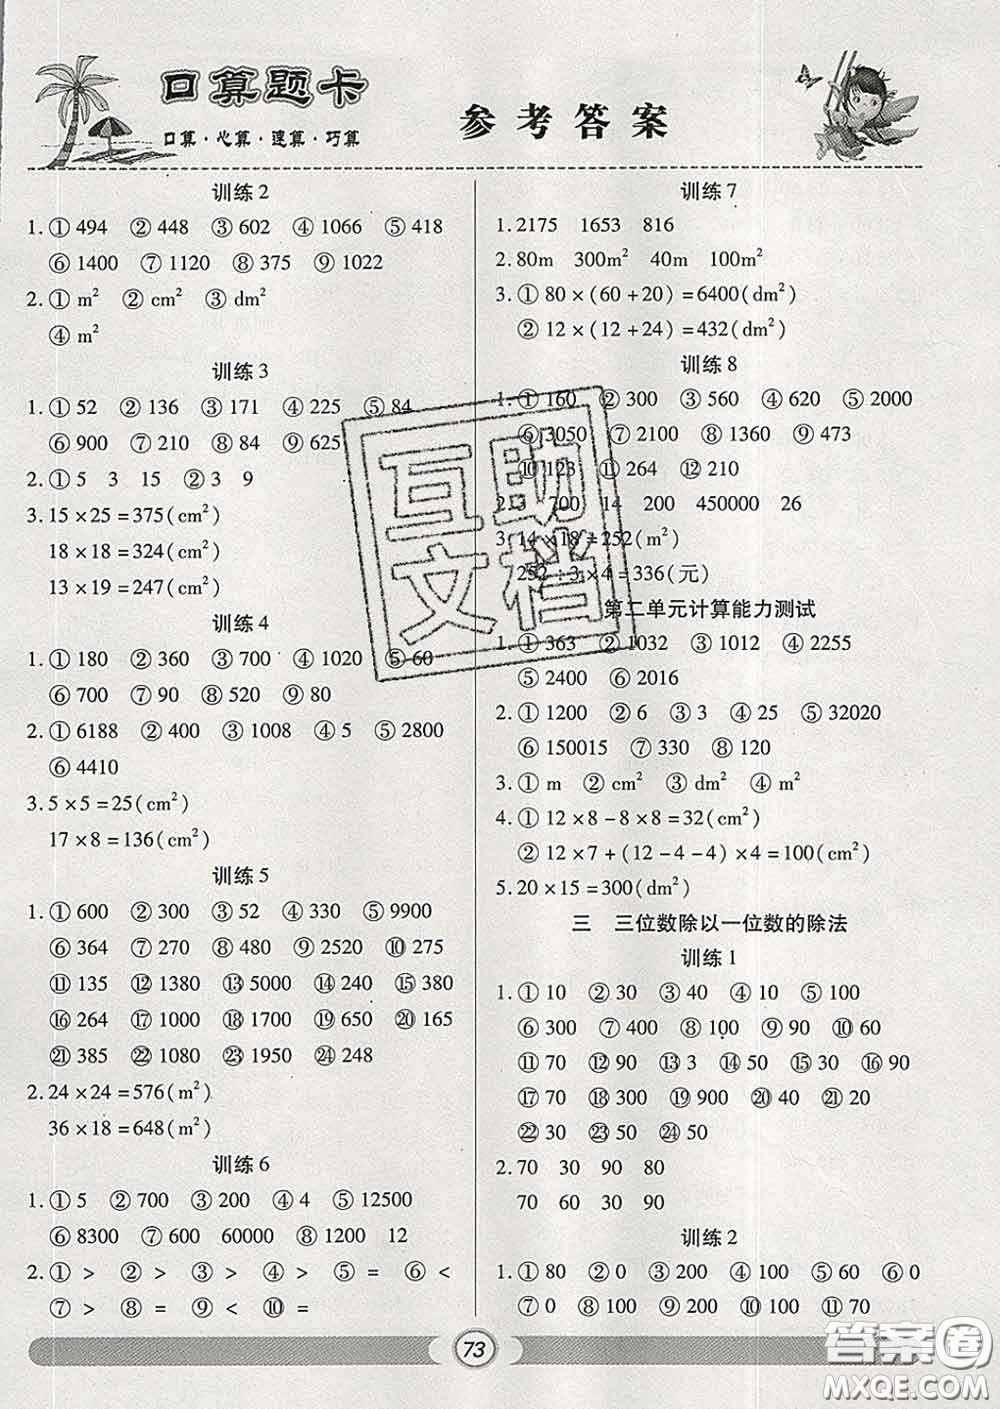 口算题卡
口算·心算·速算·巧算
参考答案
训练2
1.① 494 ② 448 ③ 602 ④ 1066 ⑤ 418
⑥ 1400 ⑦ 1120 ⑧ 375 ⑨ 1022
2.① m² ② cm² ③ dm²
④ m²
训练3
1.① 52 ② 136 ③ 171 ④ 225 ⑤ 84
⑥ 900 ⑦ 210 ⑧ 84 ⑨ 625
2.① 5 3 15 ② 3 9
3. 15×25=375(cm²)
18×18=324(cm²)
13×19=247(cm²)
训练4
1.① 180 ② 360 ③ 700 ④ 1020 ⑤ 60
⑥ 700 ⑦ 90 ⑧ 520 ⑨ 80
2.① 6188 ② 400 ③ 1008 ④ 5 ⑤ 2800
⑥ 4410
3. 5×5=25(cm²)
17×8=136(cm²)
训练5
1.① 600 ② 300 ③ 52 ④ 330 ⑤ 9900
⑥ 364 ⑦ 270 ⑧ 480 ⑨ 2520 ⑩ 275
⑪ 135 ⑫ 1380 ⑬ 5000 ⑭ 240 ⑮ 380
⑯ 264 ⑰ 1000 ⑱ 1700 ⑲ 650 ⑳ 165
㉑ 385 ㉒ 1080 ㉓ 1950 ㉔ 248
2. 24×24=576(m²)
36×18=648(m²)
训练6
1.① 5 ② 700 ③ 200 ④ 4 ⑤ 12500
⑥ 8300 ⑦ 600 60000 ⑧ 1200 12
2.① > ② > ③ > ④ > ⑤ = ⑥ <
⑦ > ⑧ = ⑨ < ⑩ =
训练7
1. 2175 1653 816
2. 80m 300m² 40m 100m²
3.① 80×(60+20)=6400(dm²)
② 12×(12+24)=432(dm²)
训练8
1.① 160 ② 300 ③ 560 ④ 620 ⑤ 2000
⑥ 3050 ⑦ 2100 ⑧ 1360 ⑨ 473
⑩ 123 ⑪ 264 ⑫ 210
2. 3 700 14 200 450000 26
3. 14×18=252(m²)
252÷3×4=336(元)
第二单元计算能力测试
1.① 363 ② 1032 ③ 1012 ④ 2255
⑤ 2400 ⑥ 2016
2.① 1200 ② 6 ③ 3 ④ 25 ⑤ 32020
⑥ 150015 ⑦ 330 ⑧ 120
3.① m ② cm² ③ dm² ④ m²
4.① 12×8-8×8=32(cm²)
② 12×7+(12-4-4)×4=100(cm²)
5. 20×15=300(dm²)
三 三位数除以一位数的除法
训练1
1.① 10 ② 30 ③ 40 ④ 10 ⑤ 100
⑥ 300 ⑦ 400 ⑧ 100 ⑨ 90 ⑩ 60
⑪ 70 ⑫ 90 ⑬ 3 ⑭ 50 ⑮ 30 ⑯ 50
⑰ 70 ⑱ 700 ⑲ 900 ⑳ 40 ㉑ 20
㉒ 30 ㉓ 50 ㉔ 50
2. 70 30 90 80
70 60 30 90
训练2
1.① 80 ② 0 ③ 200 ④ 120 ⑤ 60 ⑥ 0
⑦ 0 ⑧ 100 ⑨ 60 ⑩ 100 ⑪ 70
73
互助文档
答案圈
MXQE.COM